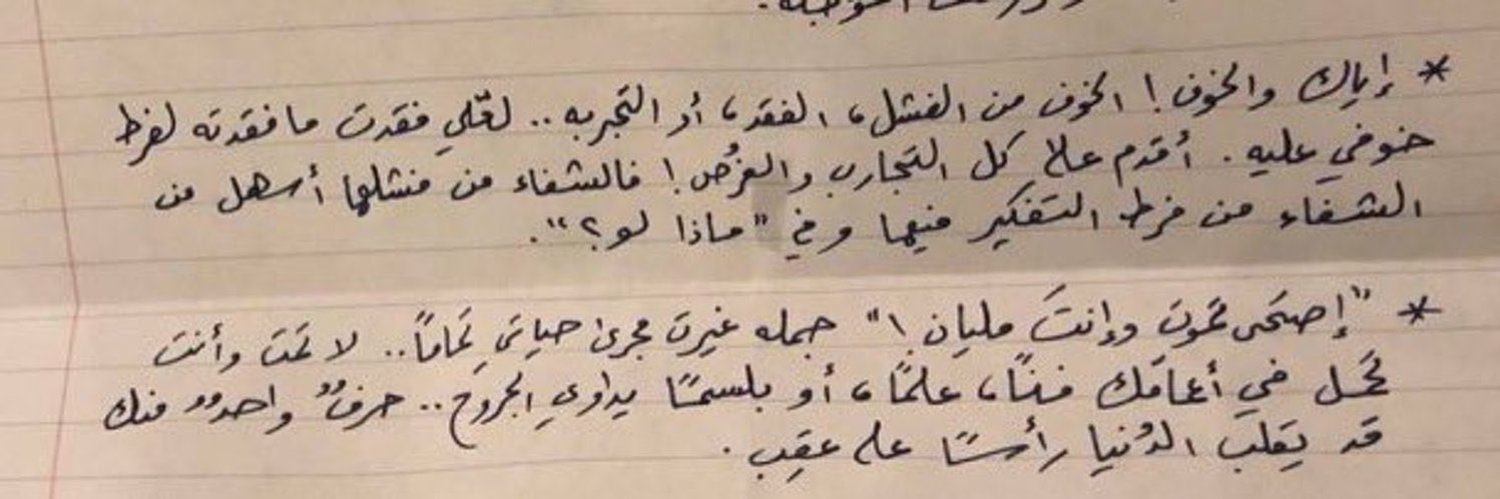 * إياك والخوف! الخوف من الفشل، الفقد، أو التجربه.. لعلّي فقدت ما فقدته لفرط
خوفي عليه. أُقدم علا كل التجارب والفرُص! فالشفاء من فشلها أسهل من
الشفاء من فرط التفكير فيها وفي "ماذا لو؟".
* "إصحَى تموت وإنتَ مليان!" جمله غيرت مجرى حياتي تماماً.. لا تمت وأنت
تحمل في أعماقك فنـًا، علمًا، أو بلسمًا يداوي الجروح.. حرفٌ واحدٌ منك
قد يَقلب الدُنيا رأسًا على عقِب.